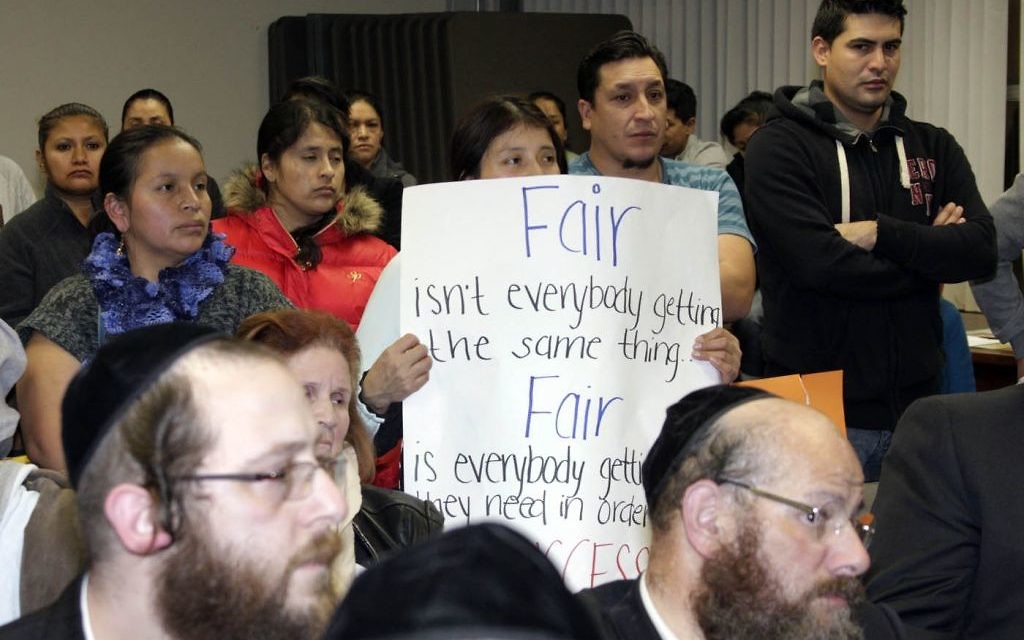 Fair
isn't everybody getting
the same thing..
Fair
is everybody getti
they need in order
CCESS